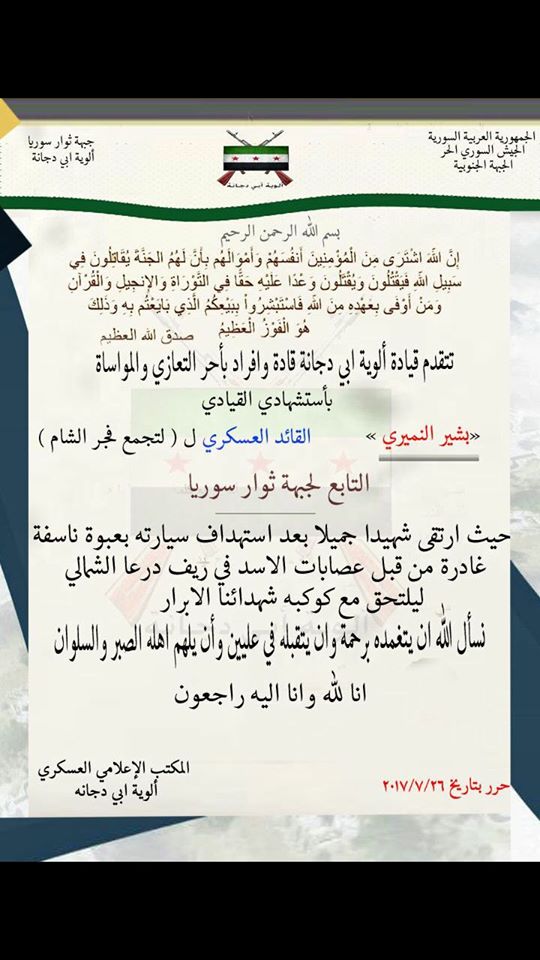 الجمهورية العربية السورية
الجيش السوري الحر
الجبهة الجنوبية
جبهة ثوار سوريا
ألوية ابي دجانة
ألوية ابي دجانة
بسم الله الرحمن الرحيم
إِنَّ اللَّهَ اشْتَرَى مِنَ الْمُؤْمِنِينَ أَنفُسَهُمْ وَأَمْوَالَهُم بِأَنَّ لَهُمُ الْجَنَّةَ يُقَاتِلُونَ فِي
سَبِيلِ اللَّهِ فَيَقْتُلُونَ وَيُقْتَلُونَ وَعْدًا عَلَيْهِ حَقًّا فِي التَّوْرَاةِ وَالإِنجِيلِ وَالْقُرْآنِ
وَمَنْ أَوْفَى بِعَهْدِهِ مِنَ اللَّهِ فَاسْتَبْشِرُواْ بِبَيْعِكُمُ الَّذِي بَايَعْتُم بِهِ وَذَلِكَ
هُوَ الْفَوْزُ الْعَظِيمُ صدق الله العظيم
تتقدم قيادة ألوية ابي دجانة قادة وافراد بأحر التعازي والمواساة
بأستشهادي القيادي
«بشير النميري » القائد العسكري ل ( لتجمع فجر الشام )
التابع لجبهة ثوار سوريا
حيث ارتقى شهيدا جميلا بعد استهداف سيارته بعبوة ناسفة
غادرة من قبل عصابات الاسد في ريف درعا الشمالي
ليلتحق مع كوكبه شهدائنا الابرار
نسأل الله ان يتغمده برحمة وان يتقبله في عليين وأن يلهم اهله الصبر والسلوان
انا لله وانا اليه راجعون
حرر بتاريخ ٢٠١٧/٧/٢٦
المكتب الإعلامي العسكري
ألوية ابي دجانه